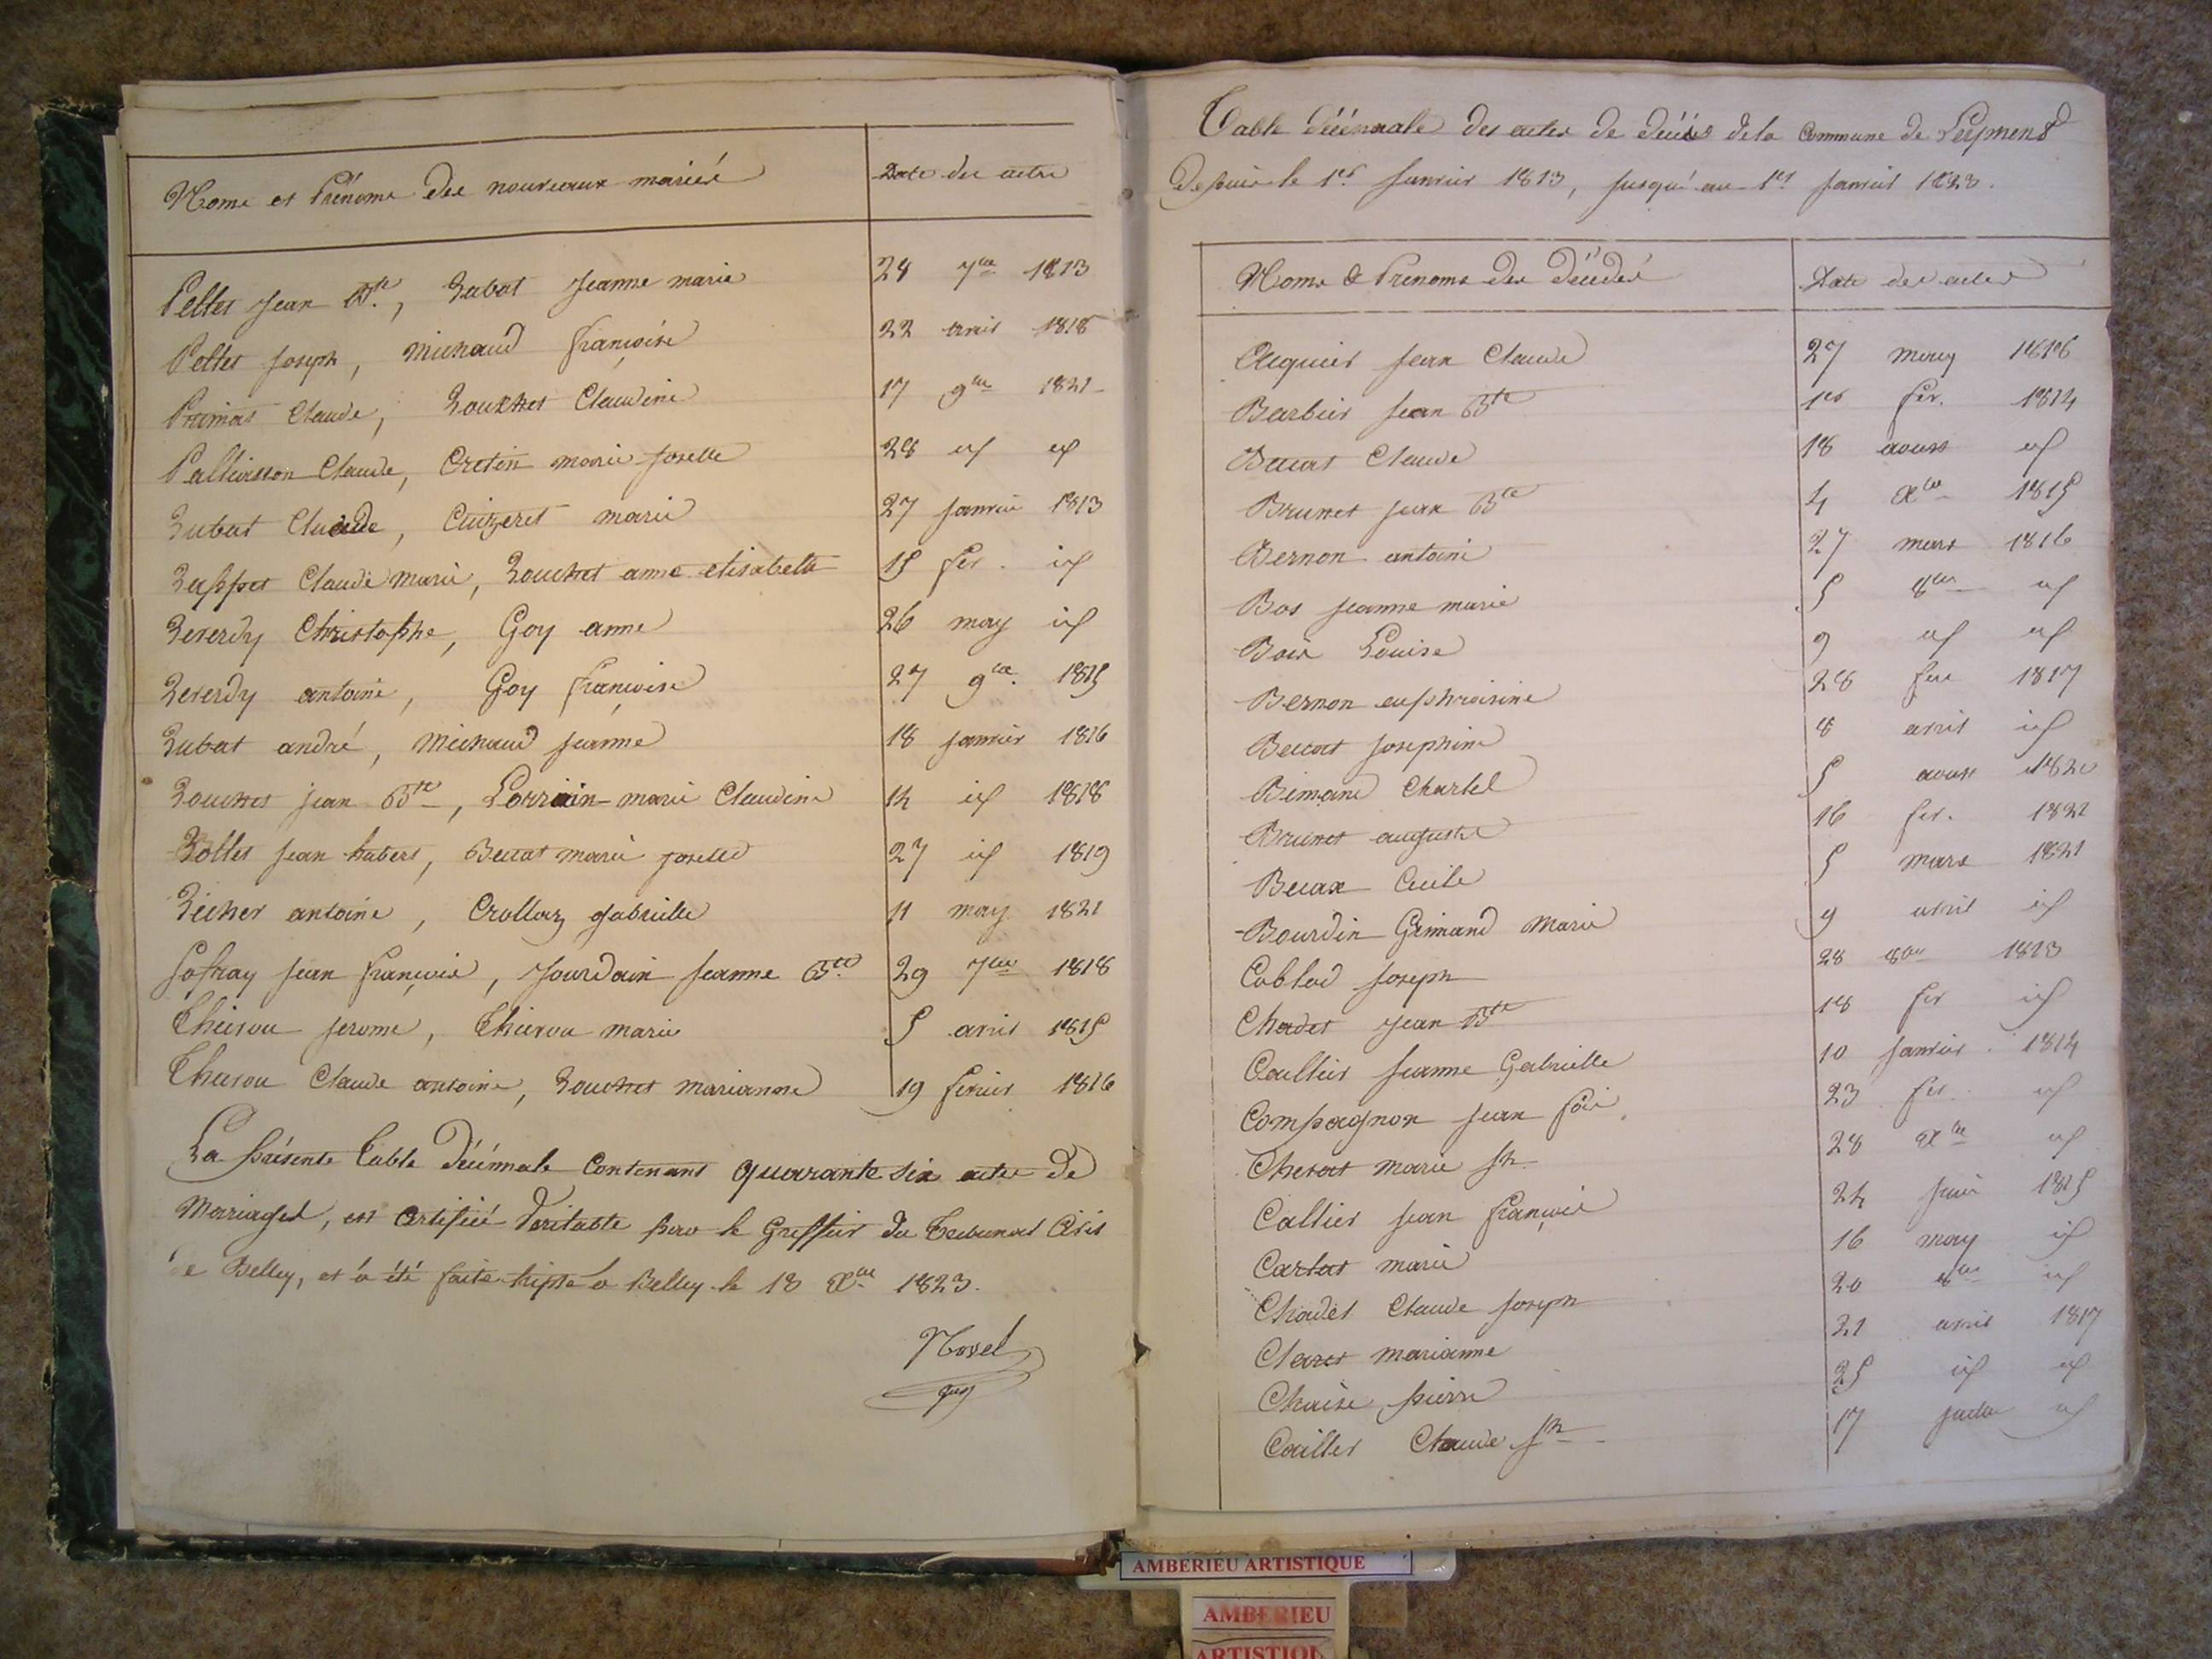 Noms et Prénoms des nouveaux mariés Date des actes
Pellet Jean Bte, Rubat Jeanne marie 28 7bre 1813
Pellet Joseph, michaud françoise 22 avril 1818
Primat Claude, Rouxtet Claudine 17 9bre 1821
Palluisson Claude, Cretin marie Josette 28 id id
Rubat Claude, Cuizeret marie 27 Janvier 1813
Claude marie, anne elisabeth 15 fev. id
Reverdy Christophe, Goy anne 26 may id
Reverdy antoine, Goy françoise 27 9bre 1815
Rubat andré, michaud Jeanne 18 janvier 1816
Jean Bte, Lorrain marie Claudine 14 id 1818
Rollet Jean hubert, marie Josette 27 id 1819
antoine, Crollaz gabrielle 11 may 1821
Jean françois, Jourdain Jeanne Bte 29 7bre 1818
Jerome, marie 5 avril 1815
Claude antoine, marianne 19 fevrier 1816
La présente table décénnale contenant quarante six actes de
Mariages, est certifiée véritable par le Greffier du Tribunal Civil
de Belley, et a été faite triple a Belley le 18 Xbre 1823.
Table décénnale des actes de décès de la commune de
depuis le 1er Janvier 1813, jusqu'au 1er Janvier 1823.
Noms & Prénoms des décédés Date des actes
Jean Claude 27 1816
Barbier Jean Bte 1er fev. 1814
Claude 18 aoust id
Brunet Jean Bte 4 Xbre 1815
Bernon antoine 27 mars 1816
Bos Jeanne marie 5 8bre id
Bois Louise 9 id id
Bernon euphroisine 28 1817
Josephine 8 avril id
Bimand Charles 5 aoust 1820
Brunet auguste 16 fev. 1821
5 mars 1821
Bourdin Grimand Marie 9 avril id
Joseph 28 8bre 1813
Chadet Jean Bte 18 fev id
Caillier Jeanne Gabrielle 10 Janvier 1814
Compagnon Jean 23 fev. id
marie 28 Xbre id
Callier Jean françois 24 1815
marie 16 may id
Chadet Claude Joseph 20 8bre id
Claret marianne 21 avril 1817
Chaise pierre 25 id id
Caillet Claude Jh 17 id
AMBERIEU ARTISTIQUE
AMBERIEU
ARTISTIQ